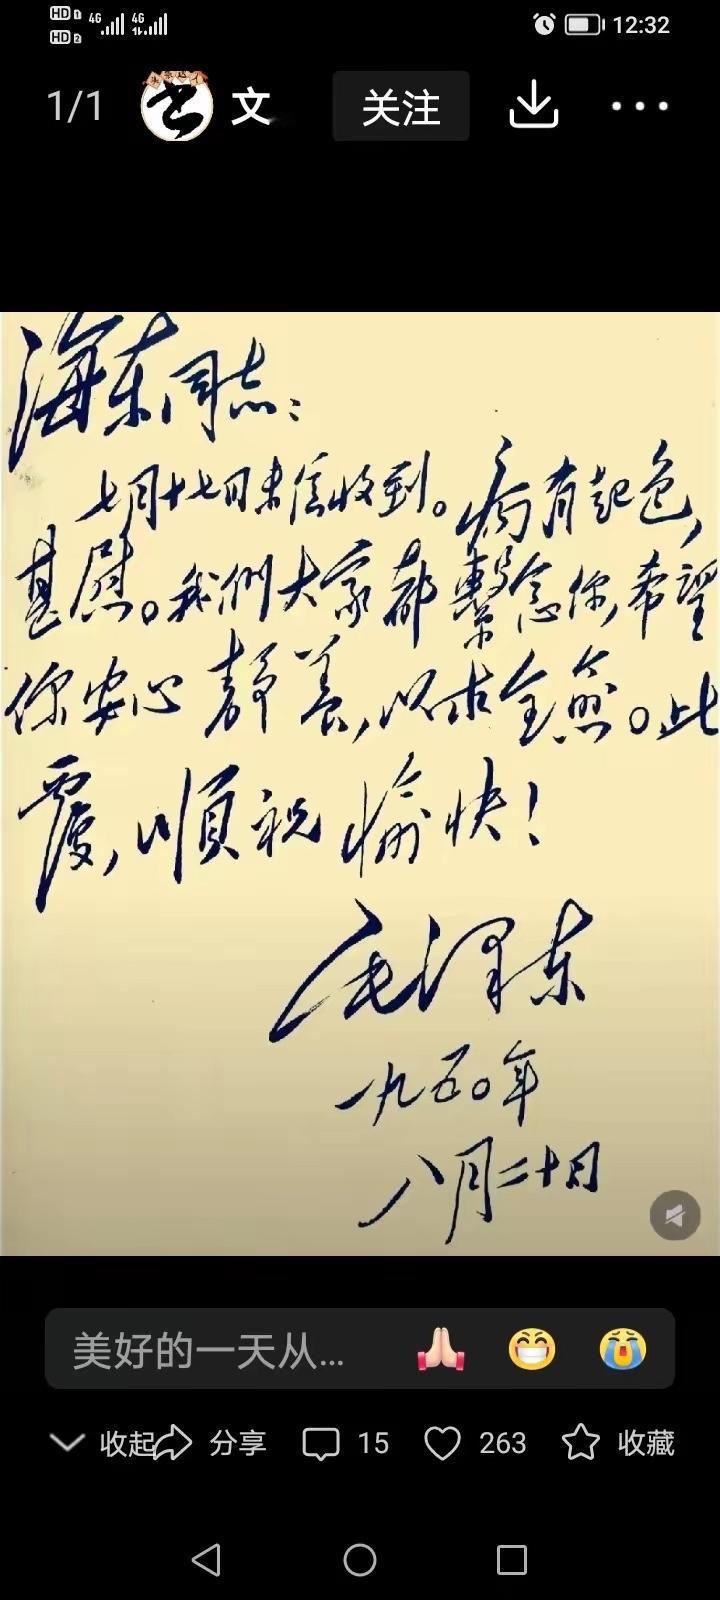 HD 1 4G 4G 12:32
HD 2
1/1 文 关注
海东同志：
七月十七日来信收到。病有起色，
甚慰。我们大家都繫念你，希望
你安心静养，以求全愈。此
覆，順祝愉快！
毛泽东
一九五〇年
八月二十日
美好的一天从...
收起 分享 15 263 收藏